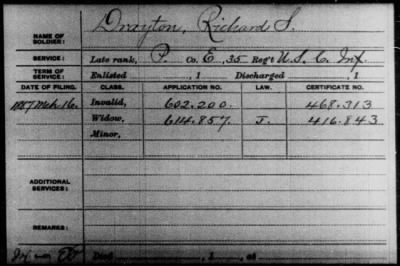 NAME OF SOLDIER: Drayton, Richard S.
SERVICE: Late rank, P. Co. E, 35 Reg't U. S. C. Inf.
TERM OF SERVICE: Enlisted , 1 Discharged , 1
DATE OF FILING. CLASS. APPLICATION NO. LAW. CERTIFICATE NO.
Mch 16. Invalid, 602.200. 468.313
Widow, 614.857 J. 416.843
Minor,
ADDITIONAL SERVICES:
REMARKS:
Died , 1 , at